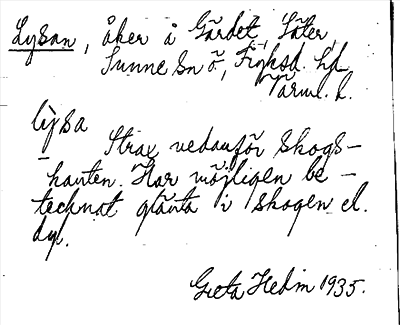 Lysan, åker å Gärdet, Säter,
Sunne sn ö, Fryksd. hd
Värml. l.
lỳsa
Strax nedanför skogs-
kanten. Har möjligen be-
tecknat glänta i skogen el.
dyl.
Greta Hedin 1935.